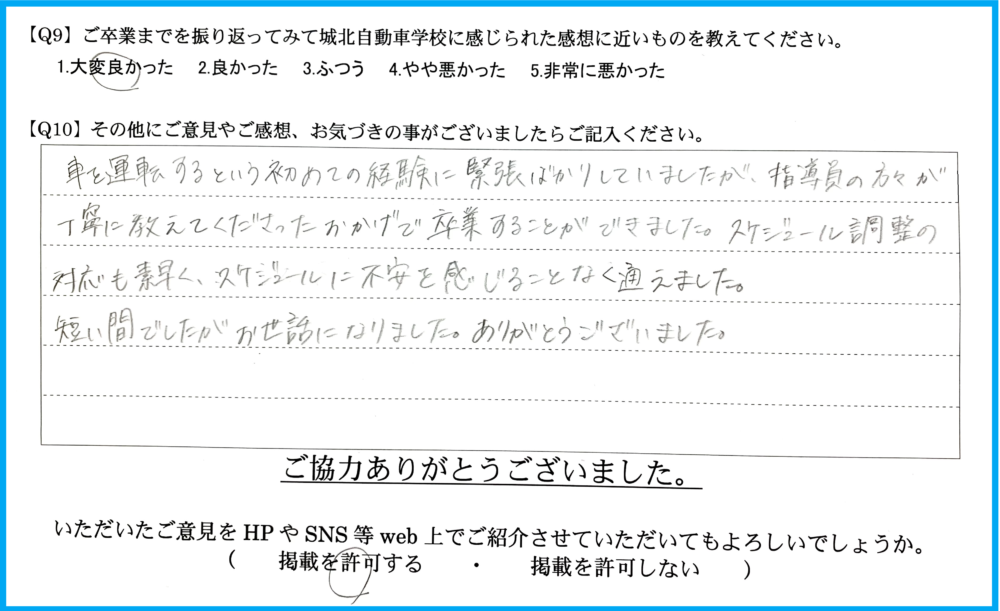 【Q9】ご卒業までを振り返ってみて城北自動車学校に感じられた感想に近いものを教えてください。
1.大変良かった 2.良かった 3.ふつう 4.やや悪かった 5.非常に悪かった
【Q10】その他にご意見やご感想、お気づきの事がございましたらご記入ください。
車を運転するという初めての経験に緊張ばかりしていましたが、指導員の方々が
丁寧に教えてくださったおかげで卒業することができました。スケジュール調整の
対応も素早く、スケジュールに不安を感じることなく通えました。
短い間でしたがお世話になりました。ありがとうございました。
ご協力ありがとうございました。
いただいたご意見をHPやSNS等web上でご紹介させていただいてもよろしいでしょうか。
( 掲載を許可する ・ 掲載を許可しない )